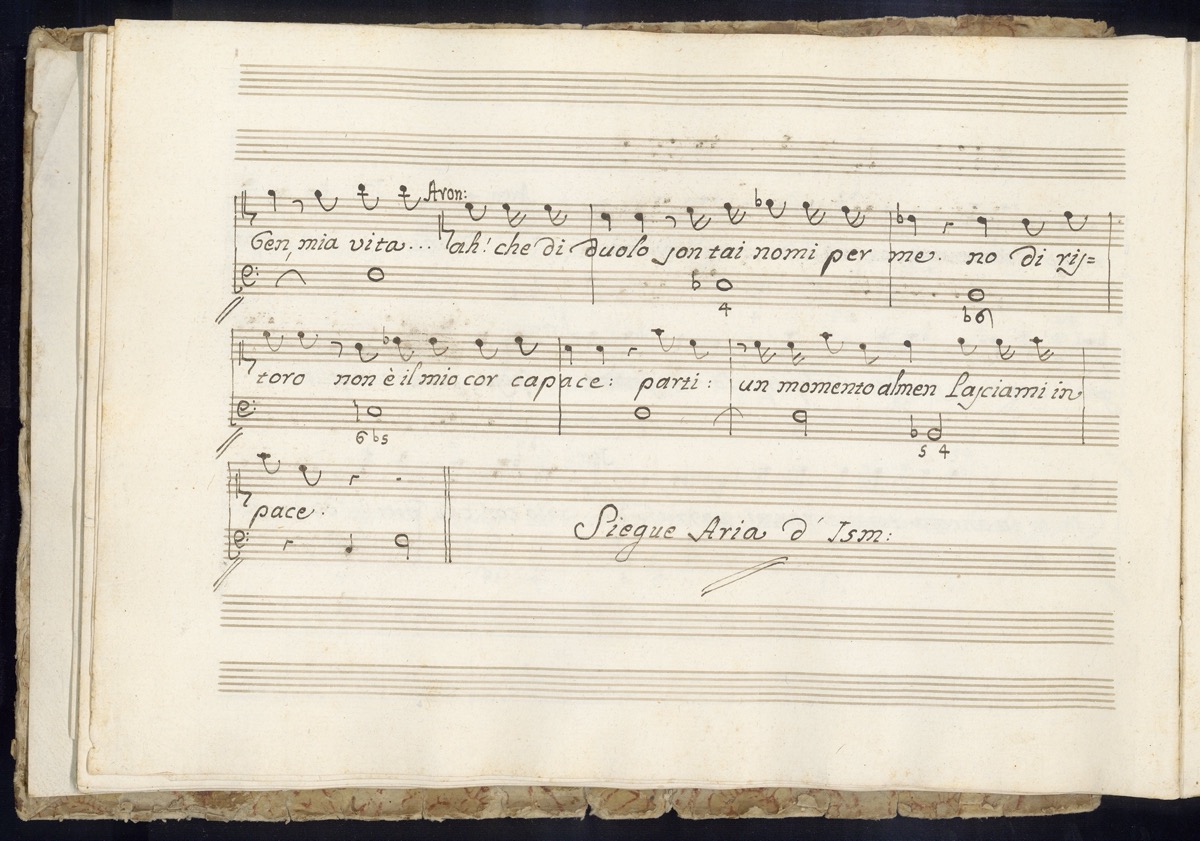 Aron:
Ben, mia vita... ah! che di duolo son tai nomi per me. no di ris=
4
b6
toro non è il mio cor capace: parti: un momento almen lasciami in
6 b5
5 4
pace.
Siegue Aria d' Ism: